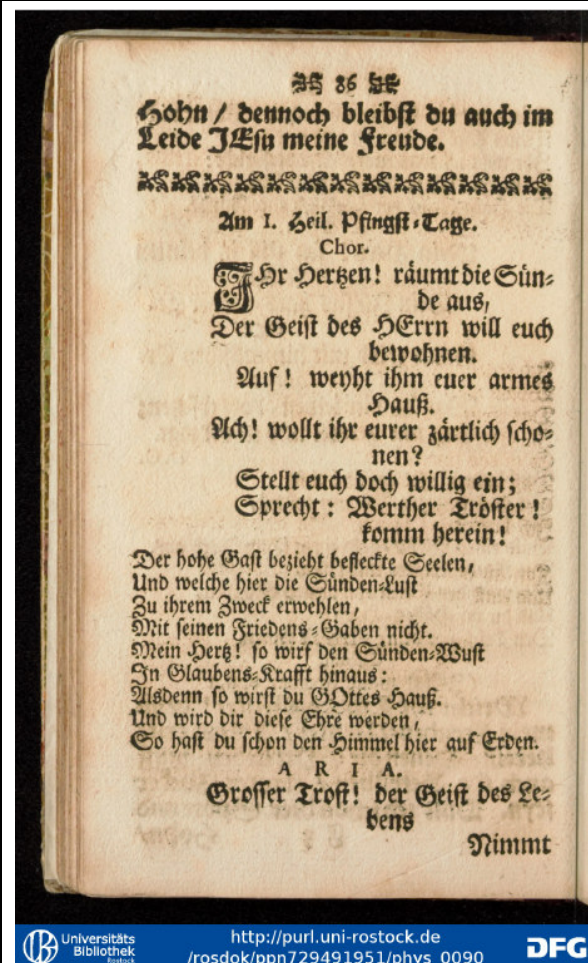 86
Hohn / dennoch bleibst du auch im
Leide JEsu meine Freude.
Am 1. Heil. Pfingst-Tage.
Chor.
IHr Hertzen! räumt die Sün-
de aus,
Der Geist des HErrn will euch
bewohnen.
Auf! weyht ihm euer armes
Hauß.
Ach! wollt ihr eurer zärtlich scho-
nen?
Stellt euch doch willig ein;
Sprecht: Werther Tröster!
komm herein!
Der hohe Gast bezieht befleckte Seelen,
Und welche hier die Sünden-Lust
Zu ihrem Zweck erwehlen,
Mit seinen Friedens-Gaben nicht.
Mein Hertz! so wirf den Sünden-Wust
In Glaubens-Krafft hinaus:
Alsdenn so wirst du GOttes Hauß.
Und wird dir diese Ehre werden,
So hast du schon den Himmel hier auf Erden.
ARIA.
Grosser Trost! der Geist des Le-
bens
Nimmt
Universitäts
Bibliothek
Rostock
http://purl.uni-rostock.de
/rosdok/ppn729491951/phys_0090
DFG